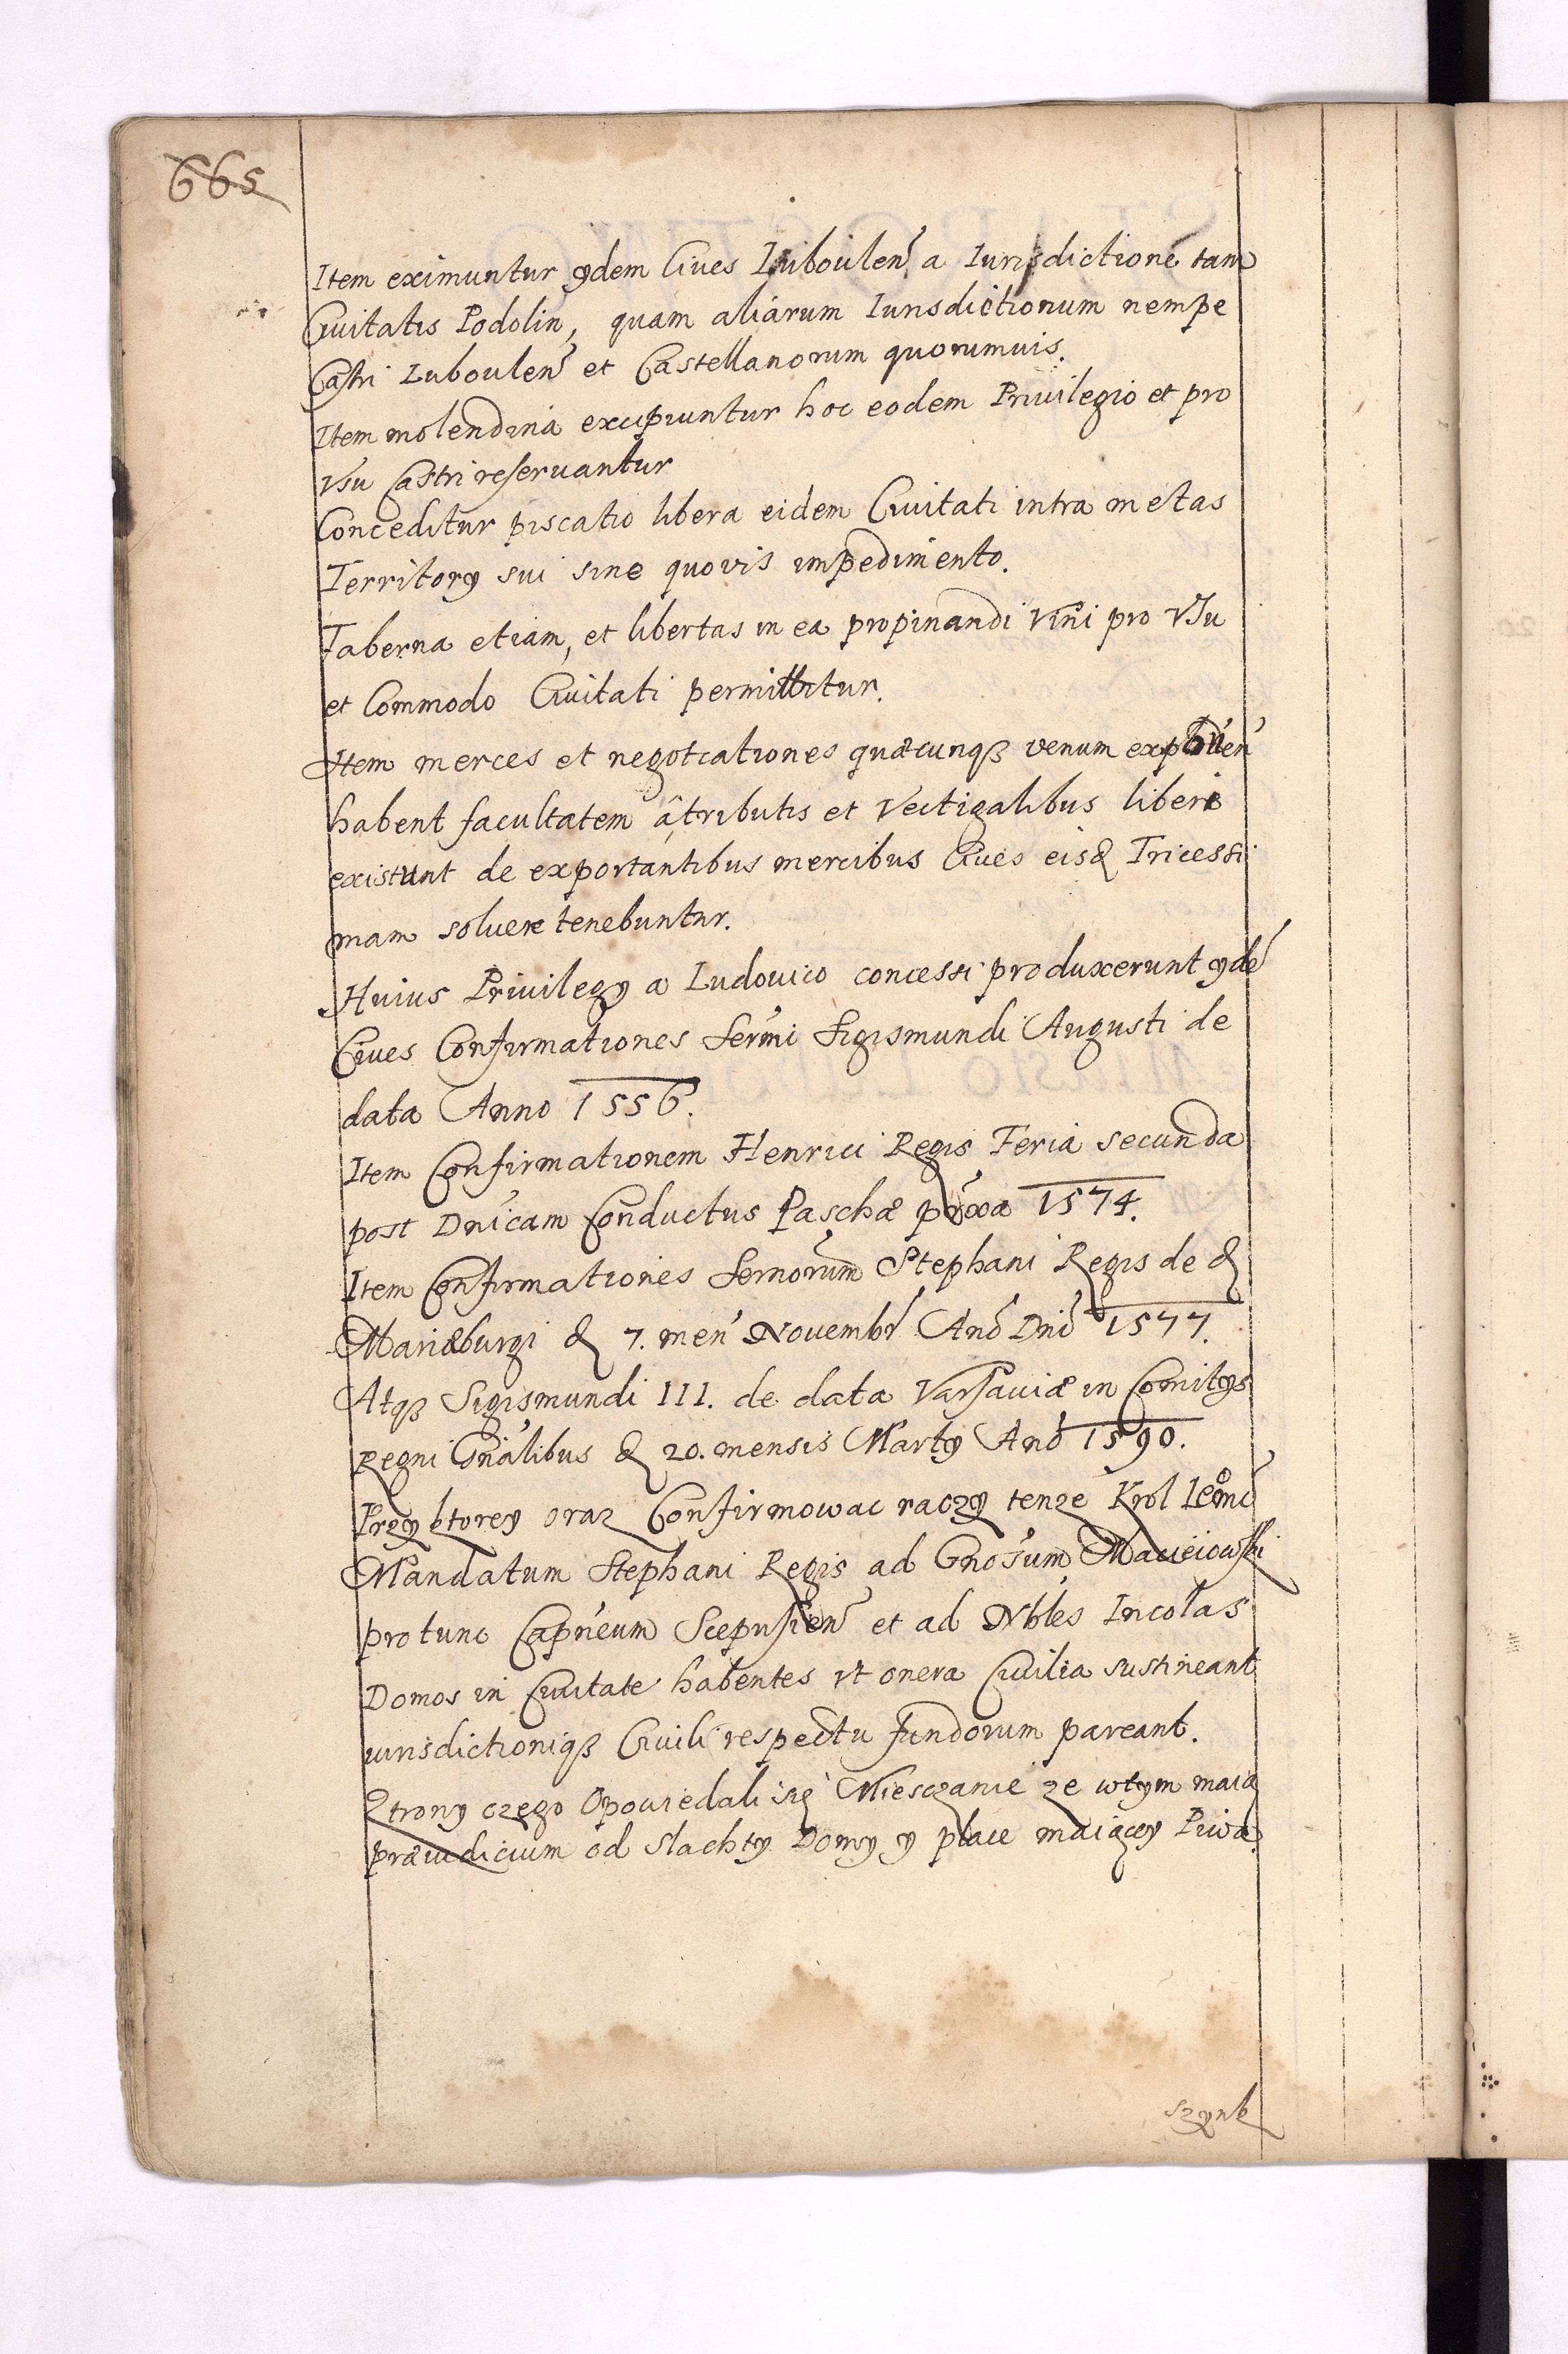 665
Item eximuntur ydem Ciues Luboulen̄ a Iurisdictione tam
Ciuitatis Podolin, quam aliarum Iurisdictionum nempe
Castri Luboulen̄ et Castellanorum quorumuis.
Item molendina excipiuntur hoc eodem Priuilegio et pro
Vsu Castri reseruantur
Conceditur piscatio libera eidem Ciuitati intra metas
Territory sui sine quovis impedimento.
Taberna etiam, et libertas in ea propinandi Vini pro Vsu
et Commodo Ciuitati permittitur.
Item merces et negotcationes quæcunqꝫ venum
habent facultatem â tributis et Vectigalibus liberi
existunt de exportantibus mercibus Ciues eisd Tricessi
mam soluere tenebuntur.
Huius Priuilegy a Ludouico concessi produxerunt ydē
Ciues Confirmationes Serm̄i Sigismundi Augusti de
data Anno 1556.
Item Confirmationem Henrici Regis Feria secunda
post Dn̄icam Conductus Paschæ prōxa 1574.
Item Confirmationes Sernorum Stephani Regis de d
Mariæburgi d 7. men̄ Novembr̄ An̄o Dn̄i 1577.
Atqꝫ Sigismundi III. de data Varsauiæ in Comitys
Regni Gn̄alibus d 20. mensis Marty An̄o 1590.
Przy ktorey oraz Confirmowac raczy tenze Krol Ieomć
Mandatum Stephani Regis ad Gnosum Macieiowski
pro tunc Capn̄eum Scepusien̄ et ad Nbles Incolas
Domos in Ciuitate habentes vt onera Ciuilia sustineant
iurisdictioniqꝫ Ciuili respectu fundorum pareant.
Ztrony czego Opowiedali się Miesczanie ze wtym maią
præiudicium od Slachty Domy y place maiącey Piwa
szynk